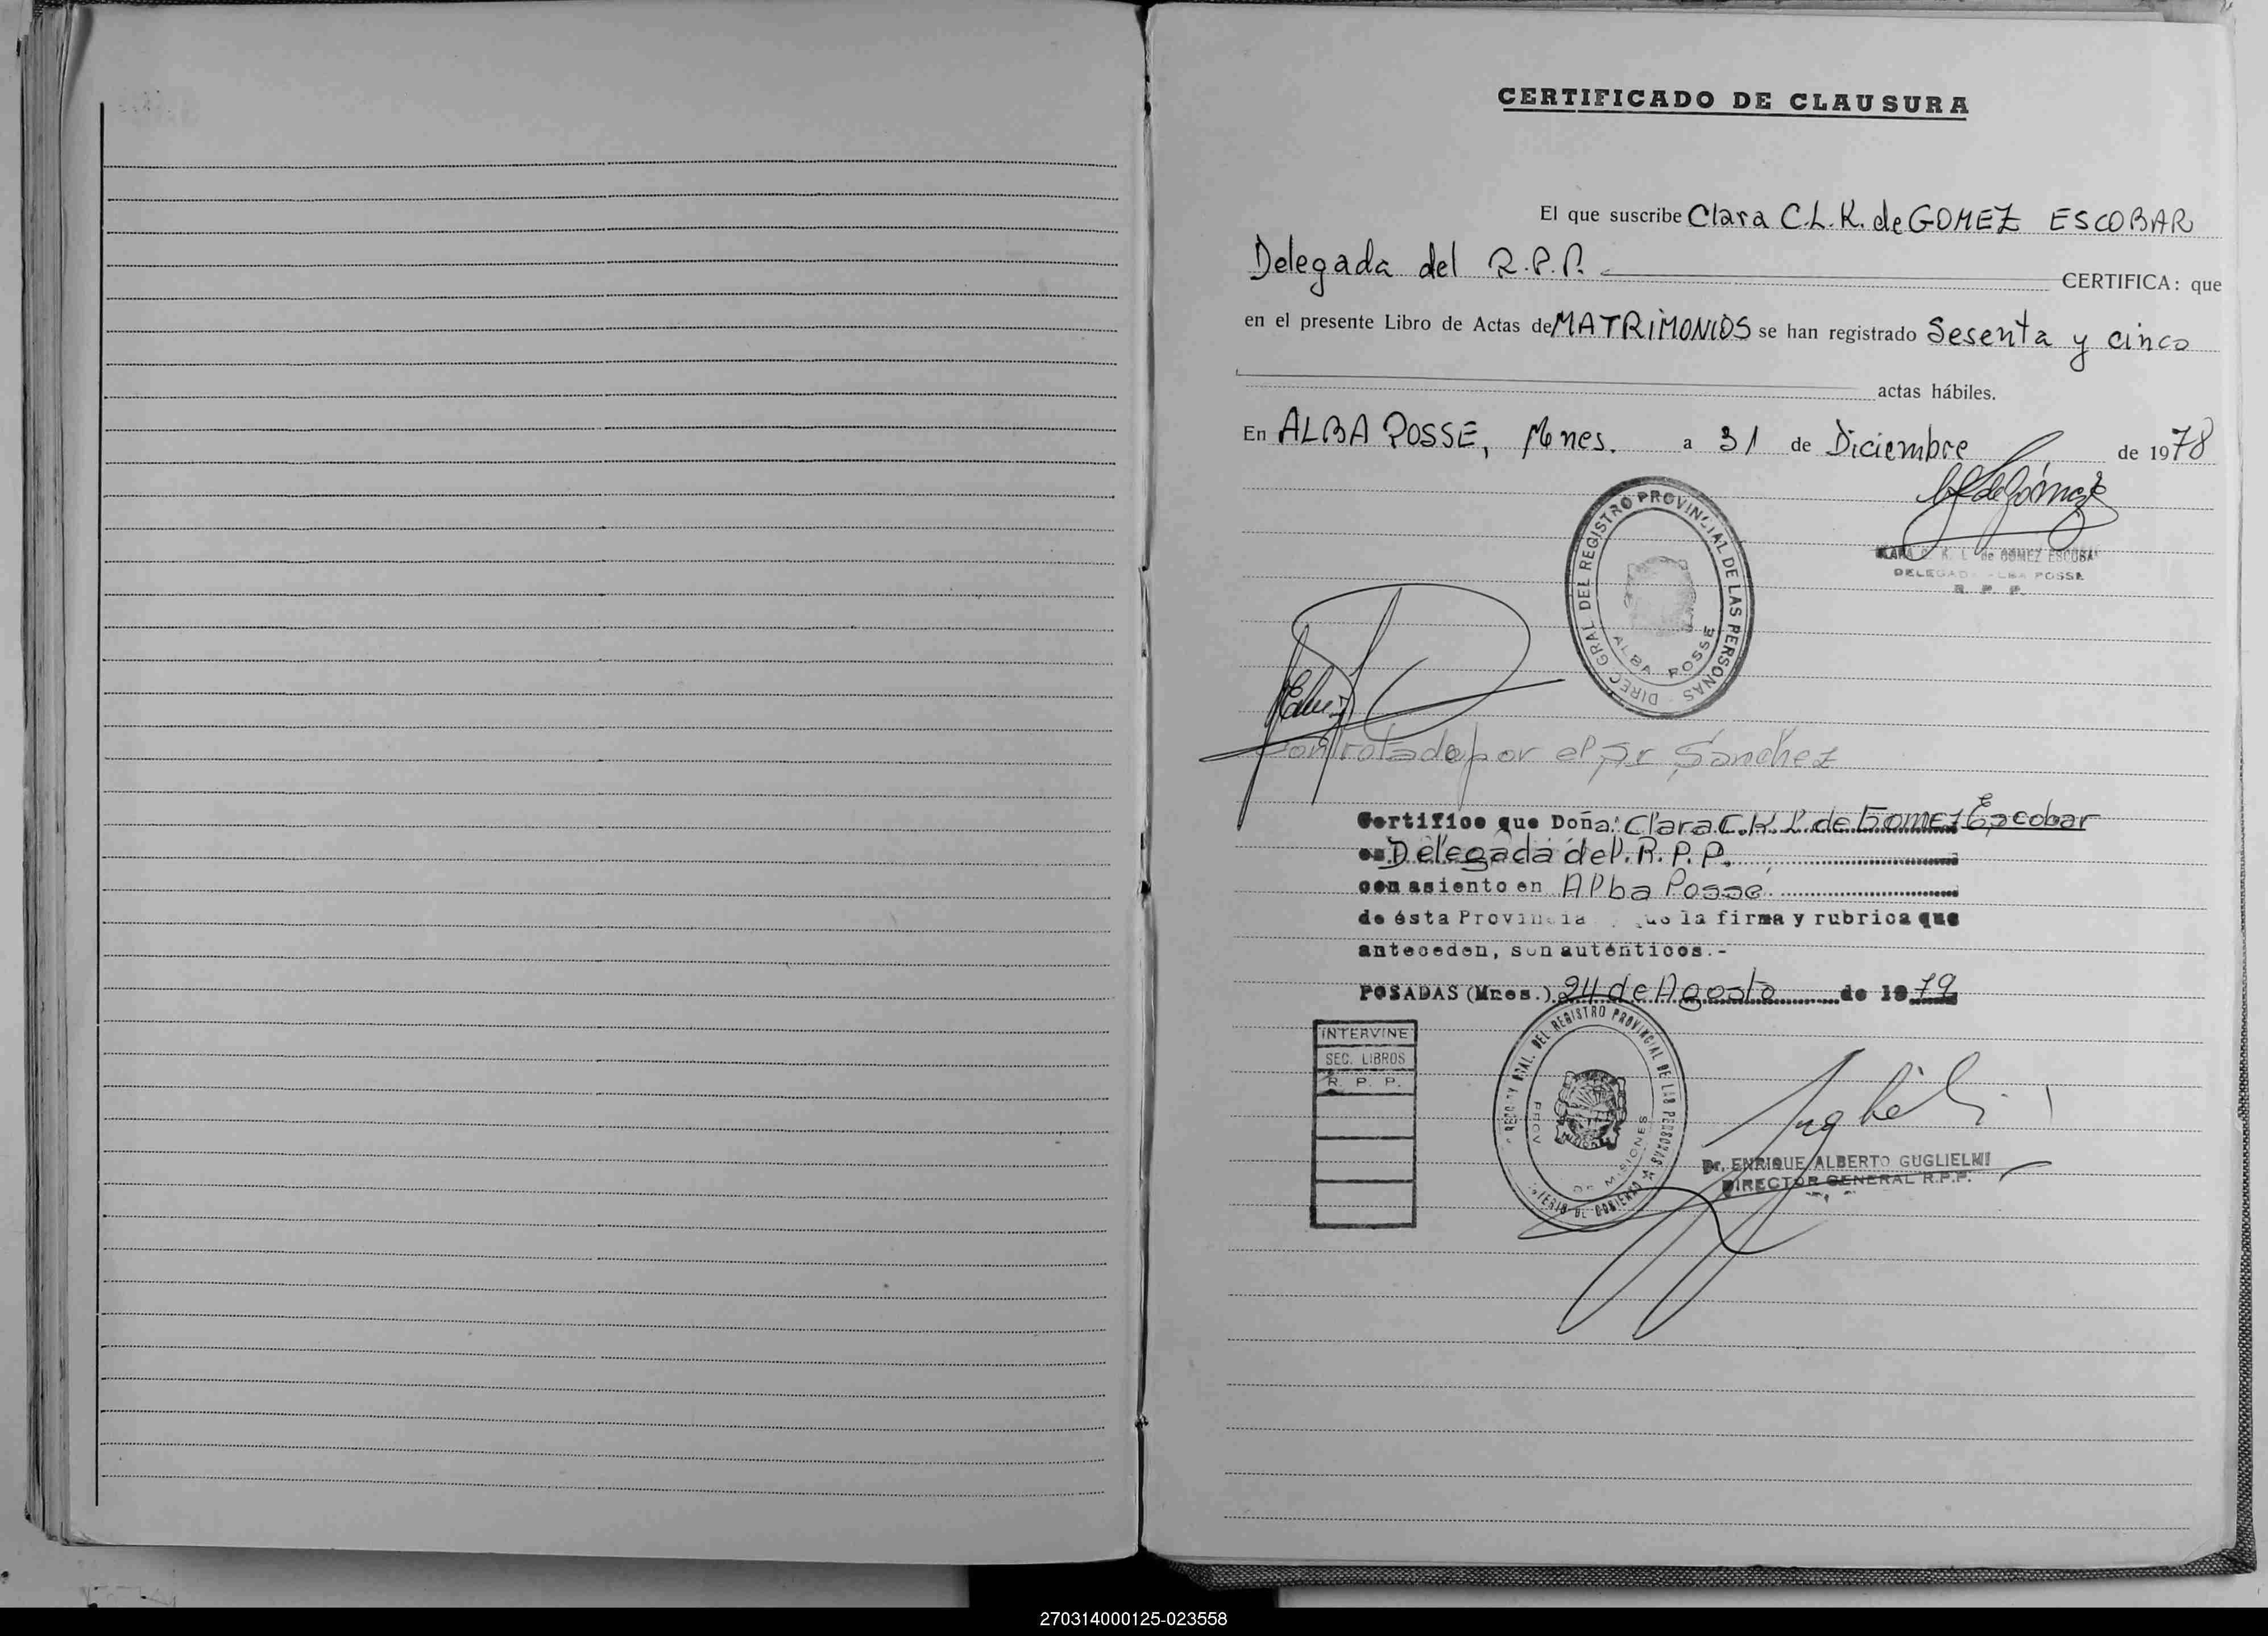 CERTIFICADO DE CLAUSURA
El que suscribe Clara C.L.K. de GOMEZ ESCOBAR
Delegada del R.P.P. CERTIFICA: que
en el presente Libro de Actas de MATRIMONIOS se han registrado Sesenta y cinco
actas hábiles.
En ALBA POSSE, Mnes. a 31 de Diciembre de 1978
DIREC. GRAL DEL REGISTRO PROVINCIAL DE LAS PERSONAS
ALBA POSSE
de GOMEZ ESCOBAR
DELEGADA ALBA POSSE
R. P. P.
Controlado por el Sr Sanchez
Certifico que Doña: Clara C. K. L. de Gomez Escobar
es Delegada del. R. P. P.
con asiento en Alba Posse.
de ésta Provincia que la firma y rubrica que
anteceden, son auténticos.-
POSADAS (Mnes.) 24 de Agosto de 1979
INTERVINE
SEC. LIBROS
R. P. P.
GRAL. DEL REGISTRO PROVINCIAL DE LAS PERSONAS
PROV. DE MISIONES
DE GOBIERNO
Dr. ENRIQUE ALBERTO GUGLIELMI
DIRECTOR GENERAL R.P.P.
270314000125-023558